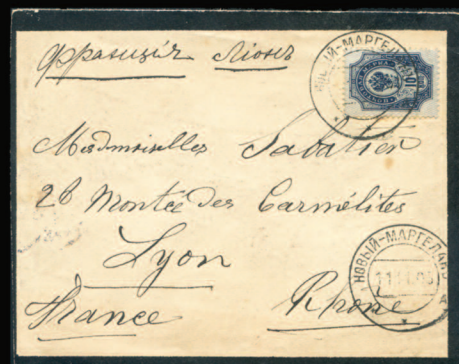 Франція Ліонъ
НОВЫЙ-МАРГЕЛАНЪ
10
Mesdemoiselles Sabatier
26 Montée des Carmélites
Lyon
France Rhone
НОВЫЙ-МАРГЕЛАНЪ